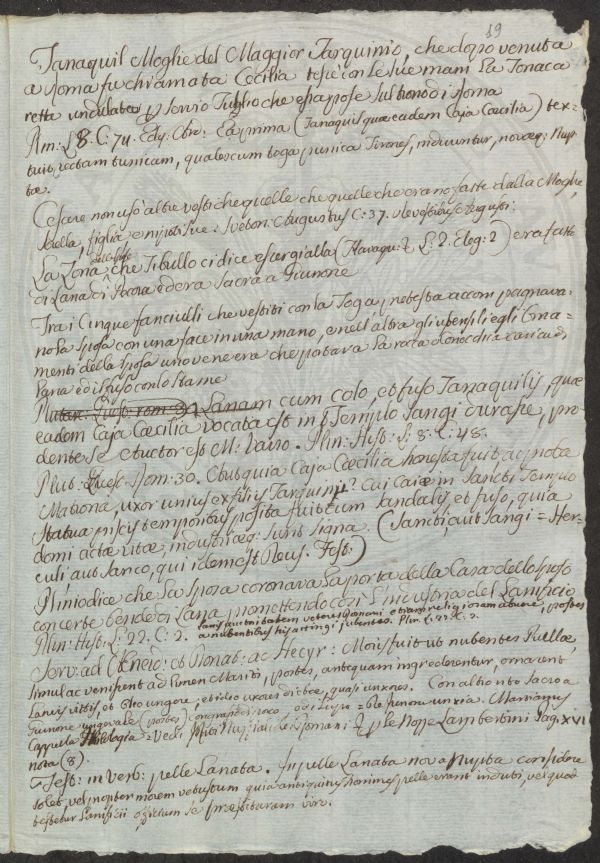 19
Tanaquil Moglie del Maggior Tarquinio, che dopo venuta
a Roma fu chiamata Cecilia tesse' con le sue mani la Tonaca
retta undulata p Servio Tullio che espose sul trono di Roma
Plin: L. 8. C. 74. Ea prima (Tanaquis quae eadem Caja Caecilia) tex-
tuit rectam tunicam, quales cum toga punica Tirones, induuntur, novaeq: Nup-
tae.
Cesare non usò altre vesti che quelle che quelle che erano fatte dalla Moglie,
sorella, figlia e nipoti sue: Sveton: Augustus C: 37.
La Zona, che Tibullo ci dice esser gialla (L. 2. Eleg: 2) era fatta
di Lana di Pecora ed era sacra a Giunone
Tra i Cinque fanciulli che vestiti con la Toga pretesta accompagnava-
no la sposa con una face in una mano, e nell'altra gli utensili e gli Orna=
menti della sposa uno ve ne era che portava la roca o conocchia carica di
lana ed il fuso con lo stame
Plutar: Quest: rom: 30 Lanam cum colo, et fuso Tanaquilis, quae
eadem Caja Caecilia vocata est in Templo Sangi durasse, pro-
dente se Auctor est M: Varro. Plin: Hist: L: 8. C. 48.
Plut: Quest: Rom: 30. At quia Caja Caecilia honesta fuit, ac proba
Matrona, uxor unius ex filiis Tarquinii? Cui Cajae in Sancti Templo
statua priscis temporibus posita fuit cum sandalis, et fuso, quia
domi actae vitae, industriaeq: sunt signa. (Sancti, aut Sangi = Her-
culi, aut Sanco, qui idem est Deus. Fest:)
Plinio dice che la sposa coronava la porta della Casa dello sposo
con certe bende di lana, promettendo così l'industria del Lanificio
Plin: Hist: L: 22. C. 2. lanis auctoritatem veteres Romani etiam religiosam habuere, postes
a nubentibus his attingi jubentes. Plin. L. 29. C. 2.
Serv: ad Aeneid: et Donat: ac Hecyr: Moris fuit ut nubentes Puellae,
simul ac venissent ad limen Mariti, postes, antequam ingrederentur, ornarent
Laneis vittis, et oleo ungerent, et ideo uxores dictae, quasi unxores. Con altro rito sacro a
Giunone = Ob Iunonem unxia. Martianus
Cappella = Vedi Riti Nuziali de Romani p le Nozze Lambertini Pag. XVI
nota (8)
Fest: in verb: pelle Lanata. In pelle Lanata nova Nupta considere
solet, vel propter morem vetustum quia antiquitus homines pelle erant induti, vel quod
testetur Lanificii officium se praestituram viro.